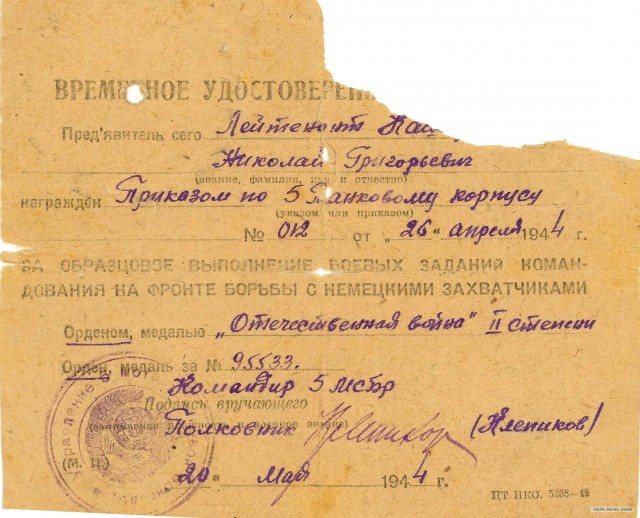 ВРЕМЕННОЕ УДОСТОВЕРЕН
Пред'явитель сего Лейтенант
Николай Григорьевич
(звание, фамилия, имя и отчество)
награждён Приказом по 5 Танковому корпусу
(указом или приказом)
№ 012 от „26“ апреля 1944 г.
ЗА ОБРАЗЦОВОЕ ВЫПОЛНЕНИЕ БОЕВЫХ ЗАДАНИЙ КОМАН-
ДОВАНИЯ НА ФРОНТЕ БОРЬБЫ С НЕМЕЦКИМИ ЗАХВАТЧИКАМИ
Орденом, медалью „Отечественная война" II степени
Орден, медаль за № 95533.
Командир 5 мсбр
Подпись вручающего
Полковник (Клепиков)
(М. П.)
Управление
20 Мая 1944 г.
ЦТ НКО. 5238—43
YAPLAKAL.COM